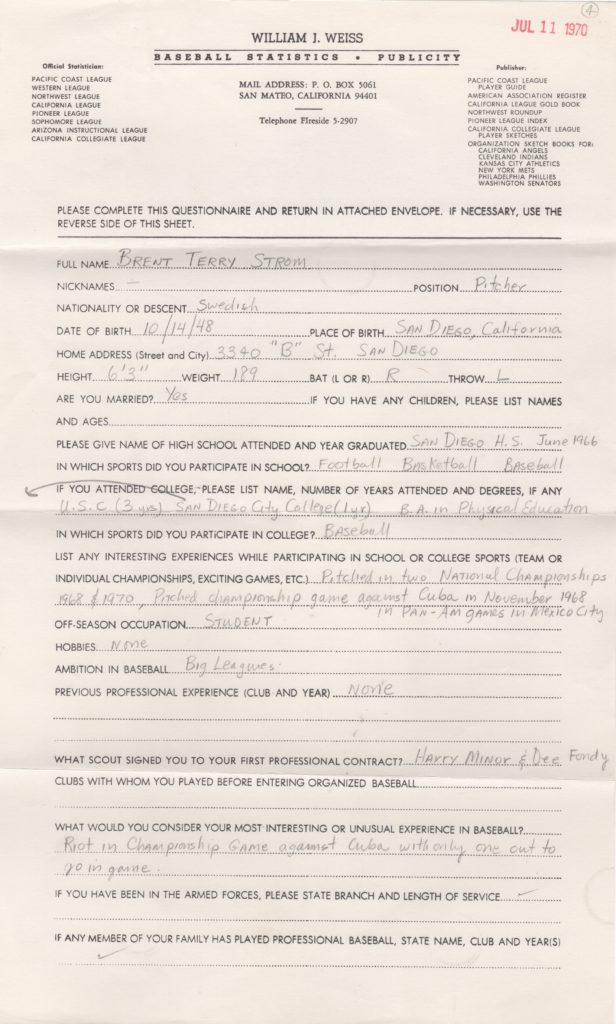 4
JUL 11 1970
WILLIAM J. WEISS
BASEBALL STATISTICS • PUBLICITY
Official Statistician:
PACIFIC COAST LEAGUE
WESTERN LEAGUE
NORTHWEST LEAGUE
CALIFORNIA LEAGUE
PIONEER LEAGUE
SOPHOMORE LEAGUE
ARIZONA INSTRUCTIONAL LEAGUE
CALIFORNIA COLLEGIATE LEAGUE
MAIL ADDRESS: P. O. BOX 5061
SAN MATEO, CALIFORNIA 94401
Telephone FIreside 5-2907
Publisher:
PACIFIC COAST LEAGUE
PLAYER GUIDE
AMERICAN ASSOCIATION REGISTER
CALIFORNIA LEAGUE GOLD BOOK
NORTHWEST ROUNDUP
PIONEER LEAGUE INDEX
CALIFORNIA COLLEGIATE LEAGUE
PLAYER SKETCHES
ORGANIZATION SKETCH BOOKS FOR:
CALIFORNIA ANGELS
CLEVELAND INDIANS
KANSAS CITY ATHLETICS
NEW YORK METS
PHILADELPHIA PHILLIES
WASHINGTON SENATORS
PLEASE COMPLETE THIS QUESTIONNAIRE AND RETURN IN ATTACHED ENVELOPE. IF NECESSARY, USE THE
REVERSE SIDE OF THIS SHEET.
FULL NAME BRENT TERRY STROM
NICKNAMES — POSITION Pitcher
NATIONALITY OR DESCENT Swedish
DATE OF BIRTH 10/14/48 PLACE OF BIRTH SAN DIEGO, California
HOME ADDRESS (Street and City) 3340 "B" St. SAN DIEGO
HEIGHT 6'3" WEIGHT 189 BAT (L OR R) R THROW L
ARE YOU MARRIED? Yes IF YOU HAVE ANY CHILDREN, PLEASE LIST NAMES
AND AGES
PLEASE GIVE NAME OF HIGH SCHOOL ATTENDED AND YEAR GRADUATED SAN DIEGO H.S. June 1966
IN WHICH SPORTS DID YOU PARTICIPATE IN SCHOOL? Football BASKetball BASeball
IF YOU ATTENDED COLLEGE, PLEASE LIST NAME, NUMBER OF YEARS ATTENDED AND DEGREES, IF ANY
U.S.C (3 yrs) SAN DIEGO City College (1 yr) B.A. in Physical Education
IN WHICH SPORTS DID YOU PARTICIPATE IN COLLEGE? BASeball
LIST ANY INTERESTING EXPERIENCES WHILE PARTICIPATING IN SCHOOL OR COLLEGE SPORTS (TEAM OR
INDIVIDUAL CHAMPIONSHIPS, EXCITING GAMES, ETC.) Pitched in two NATIONAL Championships
1968 & 1970, Pitched championship game against Cuba in November 1968
in PAN-Am games in Mexico City
OFF-SEASON OCCUPATION STUDENT
HOBBIES NONE
AMBITION IN BASEBALL Big Leagues.
PREVIOUS PROFESSIONAL EXPERIENCE (CLUB AND YEAR) NONE
WHAT SCOUT SIGNED YOU TO YOUR FIRST PROFESSIONAL CONTRACT? HARRY MINOR & Dee Fondy
CLUBS WITH WHOM YOU PLAYED BEFORE ENTERING ORGANIZED BASEBALL
WHAT WOULD YOU CONSIDER YOUR MOST INTERESTING OR UNUSUAL EXPERIENCE IN BASEBALL?
Riot in Championship Game against Cuba with only one out to
go in game.
IF YOU HAVE BEEN IN THE ARMED FORCES, PLEASE STATE BRANCH AND LENGTH OF SERVICE —
IF ANY MEMBER OF YOUR FAMILY HAS PLAYED PROFESSIONAL BASEBALL, STATE NAME, CLUB AND YEAR(S)